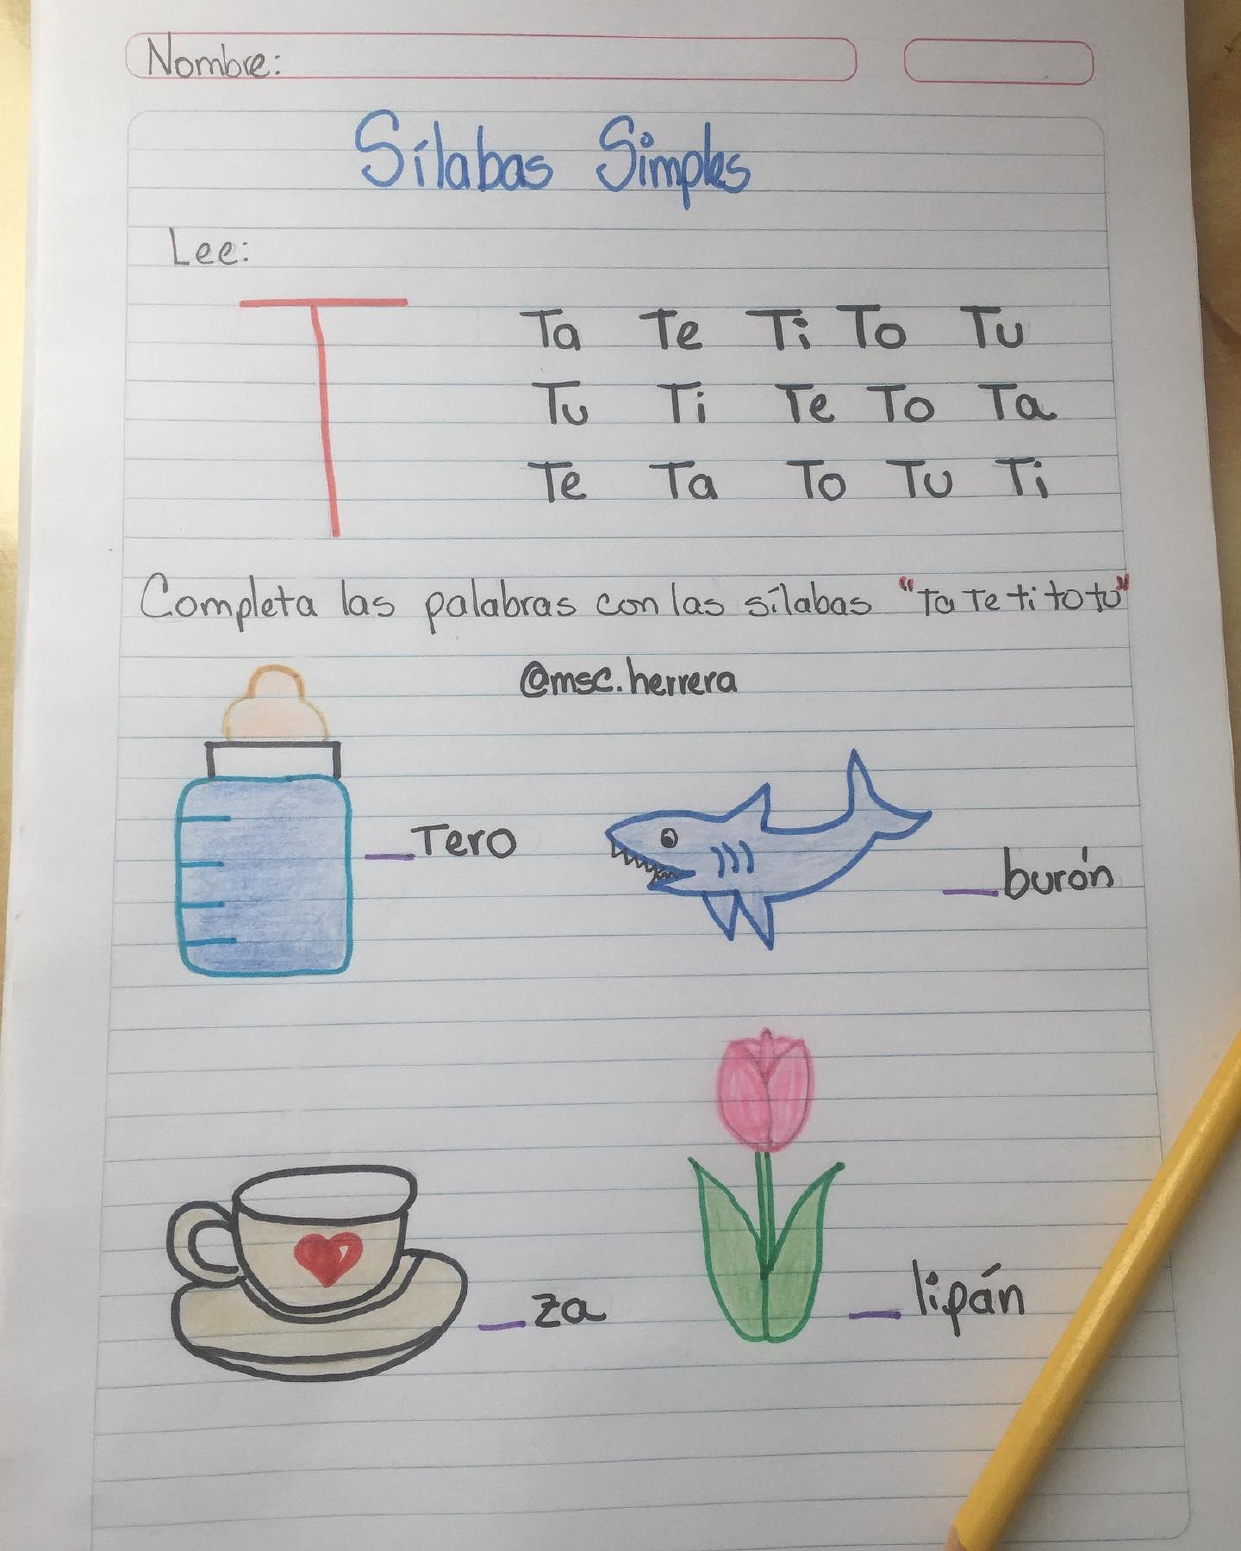 Nombre:
Sílabas Simples
Lee:
T
Ta Te Ti To Tu
Tu Ti Te To Ta
Te Ta To Tu Ti
Completa las palabras con las sílabas "Ta Te ti to tu"
@msc.herrera
_Tero
_burón
_za
_lipán